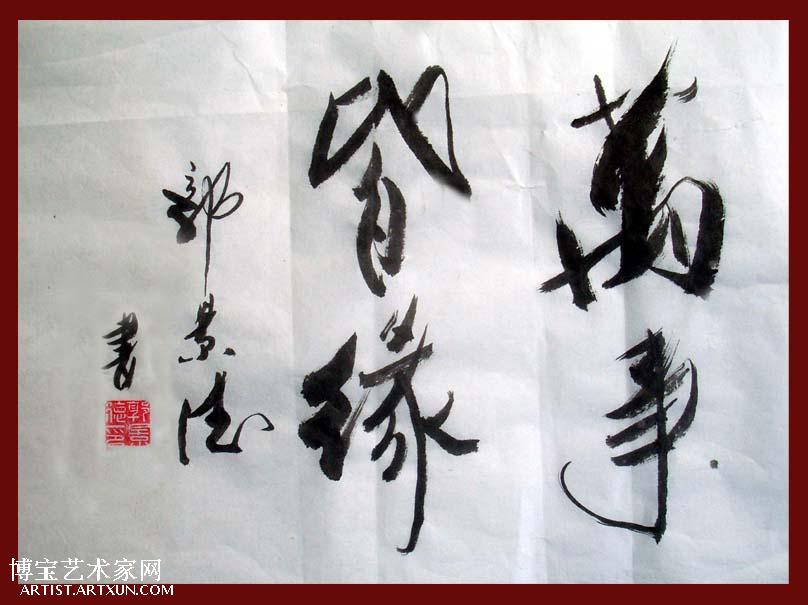 萬事
皆緣
郭景德
書
郭景
德印
博宝艺术家网
ARTIST.ARTXUN.COM